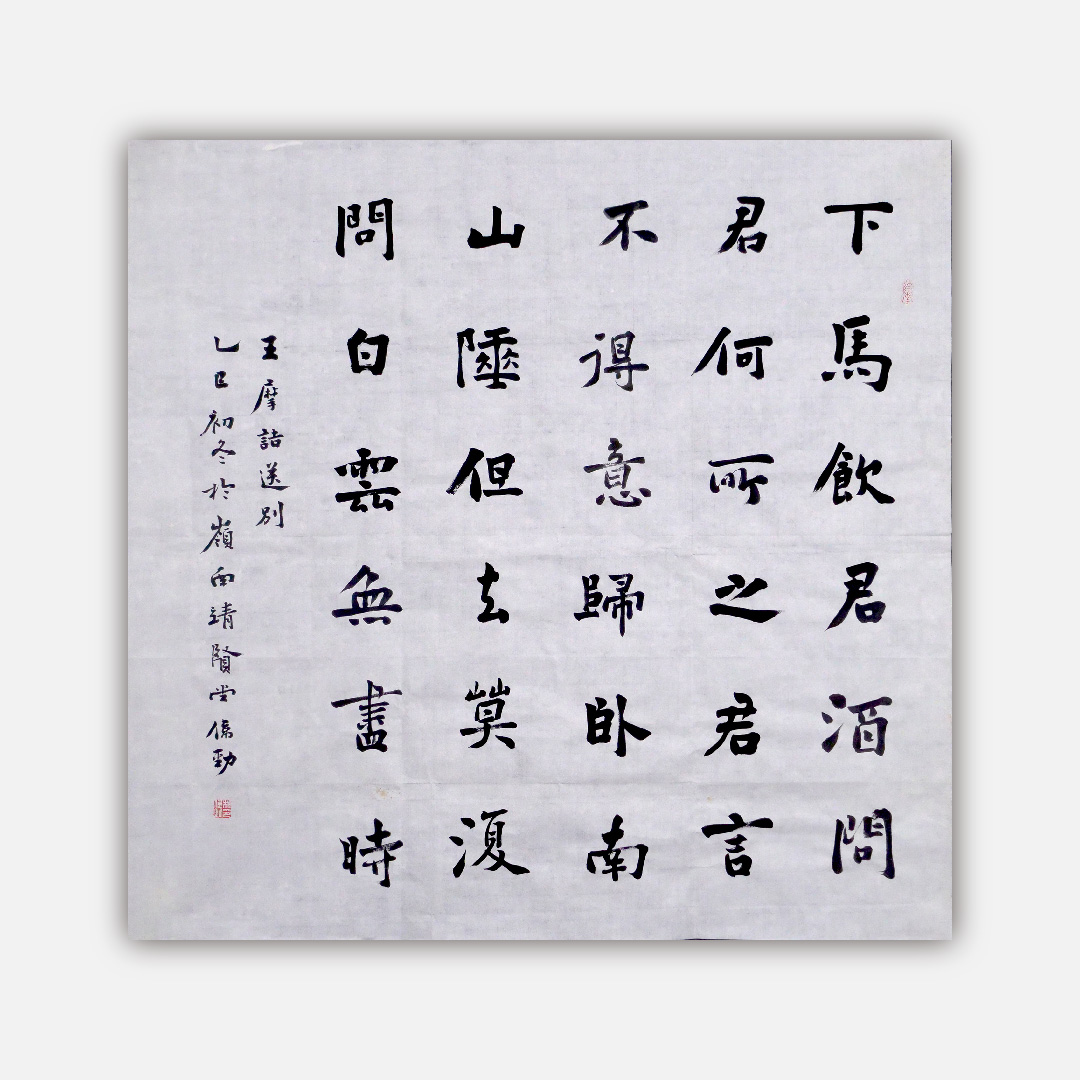 下馬飲君酒問
君何所之君言
不得意歸卧南
山陲但去莫復
問白雲無盡時
王摩詰送別
乙巳初冬於嶺南靖賢堂勁